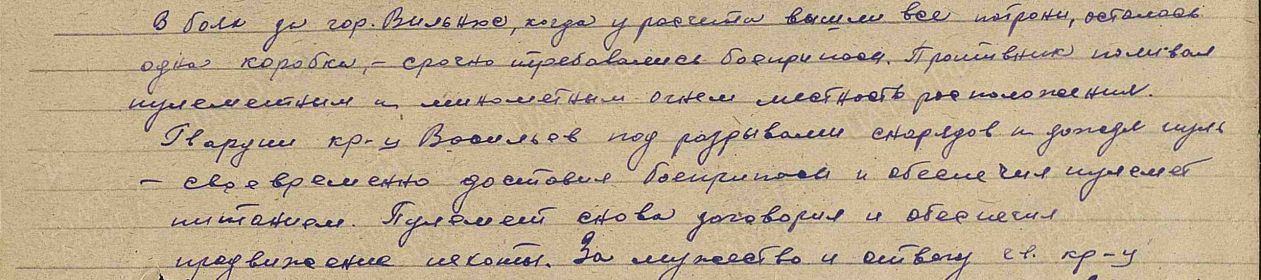 В боях за гор. Вильнюс, когда у расчета вышли все патроны, осталась
одна коробка, – срочно требовались боеприпасы. Противник поливал
пулеметным и минометным огнем местность расположения.
Гвардии кр-ц Васильев под разрывами снарядов и дождя пуль
– своевременно доставил боеприпасы и обеспечил пулемет
питанием. Пулемет снова заговорил и обеспечил
продвижение пехоты. За мужество и отвагу гв. кр-ц